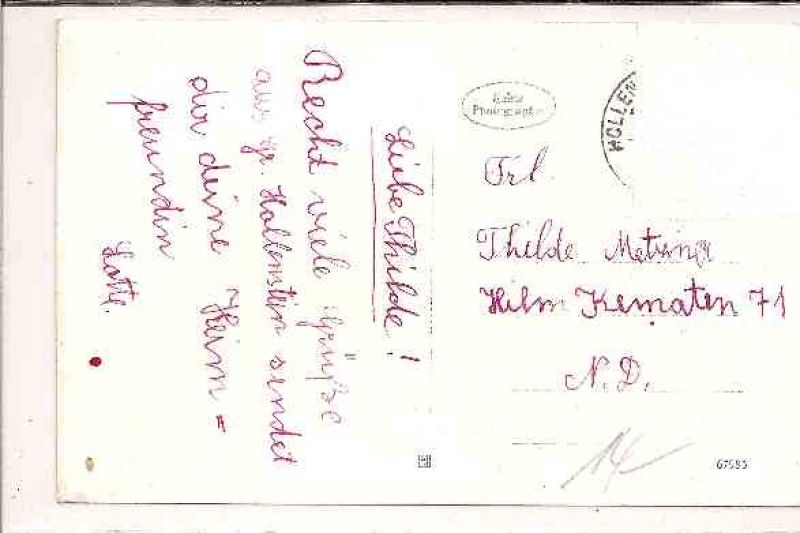 Liebe Thilde!
Recht viele Grüße
aus Gr. Hollenstein sendet
dir deine Heim=
freundin
Lotte.
Echte
Photographie
HOLLEN
Frl.
Thilde
Hilm Kematen 71
N.D.
67585